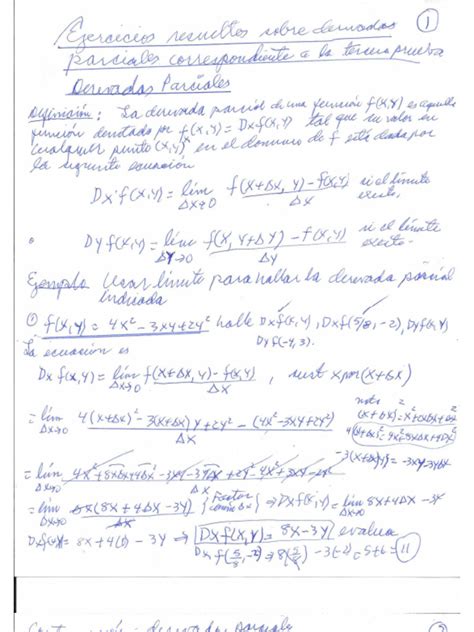 Ejercicios resueltos sobre derivadas ①
parciales correspondiente a la tercera prueba
Derivadas Parciales
Definición: La derivada parcial de una función f(x,y) es aquella
función denotada por f(x,y) = Dxf(x,y) tal que su valor en
cualquier punto (x,y) en el dominio de f está dada por
la siguiente ecuación
Dx f(x,y) = lím f(x+Δx, y) - f(x,y) si el límite
Δx→0 Δx existe.
Dyf(x,y) = lím f(x, y+Δy) - f(x,y) si el límite
Δy→0 Δy existe.
Ejemplo Usar límite para hallar la derivada parcial
indicada
① f(x,y) = 4x² - 3xy + 2y² halle Dxf(x,y), Dxf(5/8, -2), Dyf(x,y)
Dyf(-4,3).
La ecuación es
Dx f(x,y) = lím f(x+Δx, y) - f(x,y) , sust x por (x+Δx)
Δx→0 Δx
nota
= lím 4(x+Δx)² - 3(x+Δx)y + 2y² - (4x² - 3xy + 2y²)
Δx→0 Δx
-3(x+Δx)y = -3xy - 3yΔx
= lím 4x² + 8xΔx + 4Δx² - 3xy - 3yΔx + 2y² - 4x² + 3xy - 2y²
Δx→0 Δx
= lím Δx(8x + 4Δx - 3y) {Factor común Δx} ⇒ Dxf(x,y) = lím 8x + 4Δx - 3y
Δx→0 Δx Δx→0
Dxf(x,y) = 8x + 4(0) - 3y ⇒ Dxf(x,y) = 8x - 3y evalua
Dxf(5/8, -2) = 8(5/8) - 3(-2) = 5 + 6 = 11
derivadas parciales